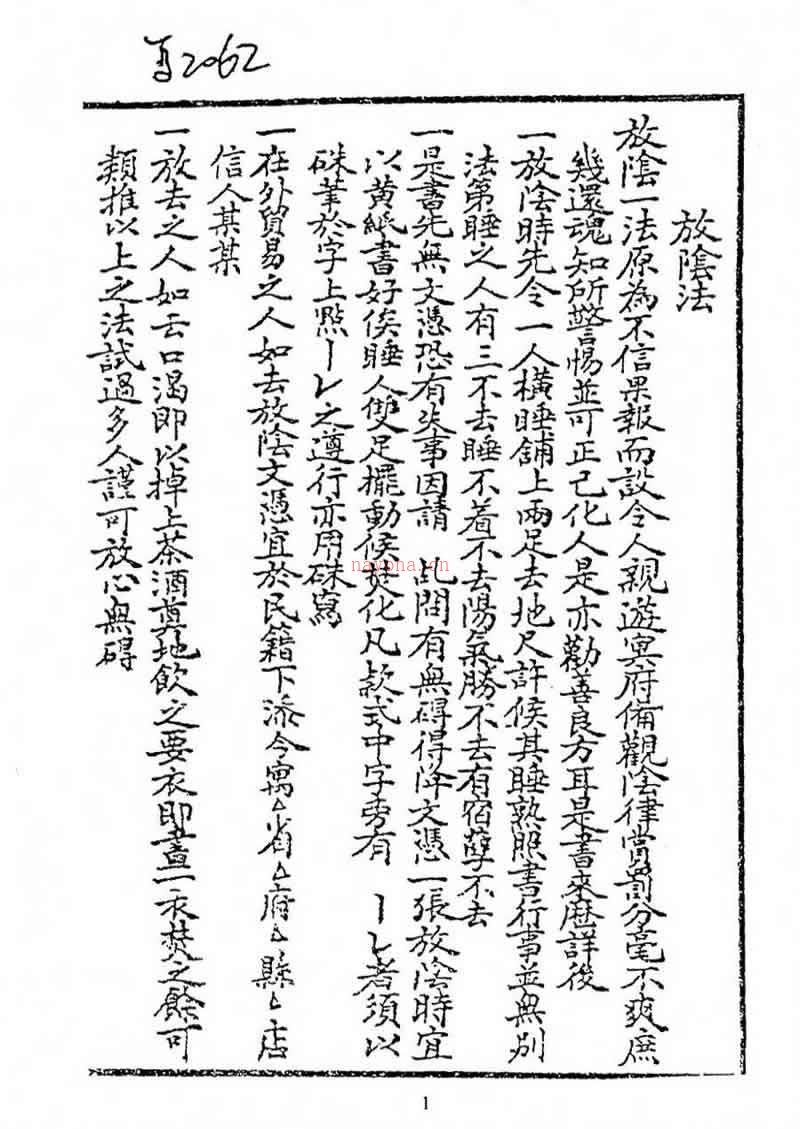 2062
放陰法
放陰一法原為不信果報而設令人親遊冥府備觀陰律賞罰分毫不爽庶
幾還魂知所警惕並可正己化人是亦勸善良方耳是書來歷詳後
一放陰時先令一人橫睡舖上兩足去地尺許候其睡熟照書行事並無別
法第睡之人有三不去睡不着不去陽氣勝不去有宿孽不去
一是書先無文憑恐有失事因請 此問有無碍得降文憑一張放陰時宜
以黃紙書好俟睡人雙足擺動候焚化凡款式中字旁有 者須以
硃筆於字上點 之遵行亦用硃寫
一在外貿易之人如去放陰文憑宜於民籍下添今寓△省△府△縣△店
信人某某
一放去之人如云口渴即以掉上茶酒奠地飲之要衣即畫一衣焚之餘可
類推以上之法試過多人謹可放心無碍
naypha.cn
1